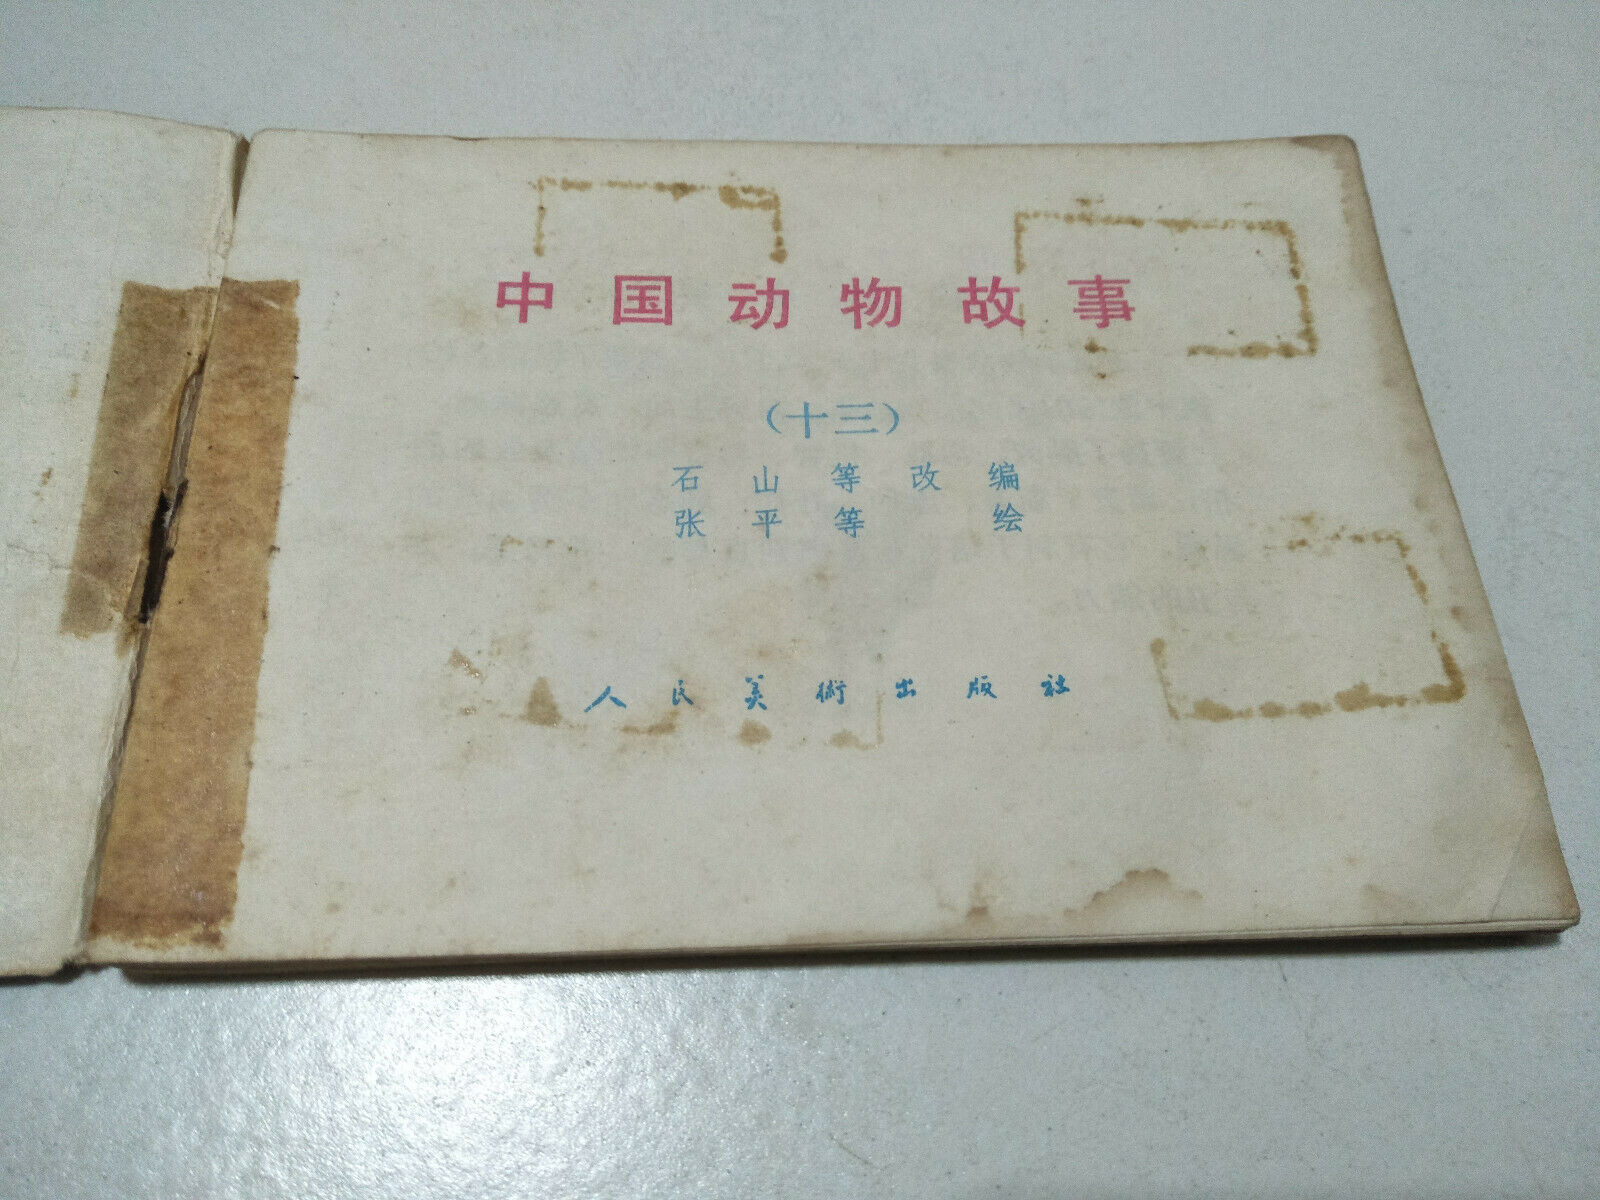 中国动物故事
（十三）
石山等改编
张平等 绘
人民美術出版社